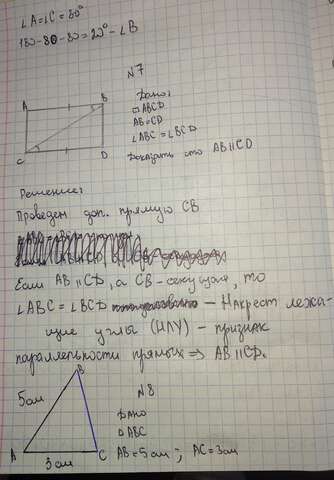 ∠A=∠C=80°
180-80-80=20° - ∠B
№7
A B
C D
Дано:
□ABCD
AB=CD
∠ABC=∠BCD
Доказать что AB||CD
Решение:
Проведем доп. прямую CB
Если AB||CD, а CB-секущая, то
∠ABC=∠BCD - Накрест лежа-
щие углы (НЛУ) - признак
параллельности прямых ⇒ AB||CD.
№8
B
5см
Дано
△ABC
A 3см C AB=5см; AC=3см